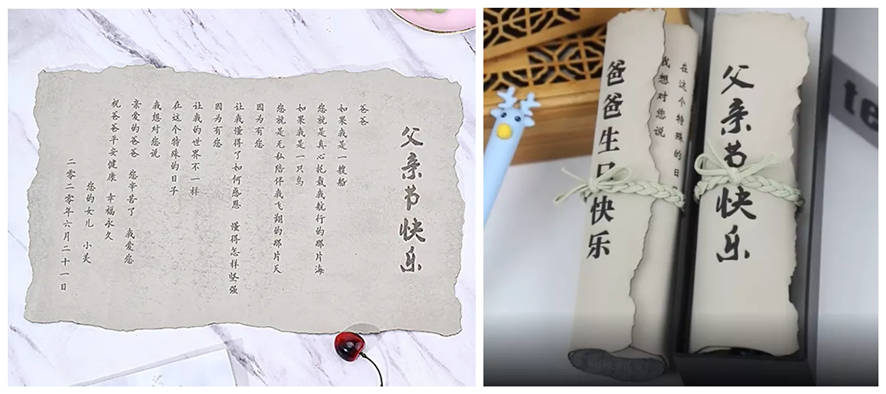 父亲节快乐
爸爸
如果我是一艘船
您就是真心托载我航行的那片海
如果我是一只鸟
您就是无私陪伴我飞翔的那片天
因为有您
让我懂得了如何感恩 懂得怎样坚强
因为有您
让我的世界不一样
在这个特殊的日子
我想对您说
亲爱的爸爸 您辛苦了 我爱您
祝爸爸平安健康 幸福永久
您的女儿 小美
二零二零年六月二十一日
te
父亲节快乐
在这个特殊的日
我想对您说
爸爸生日快乐